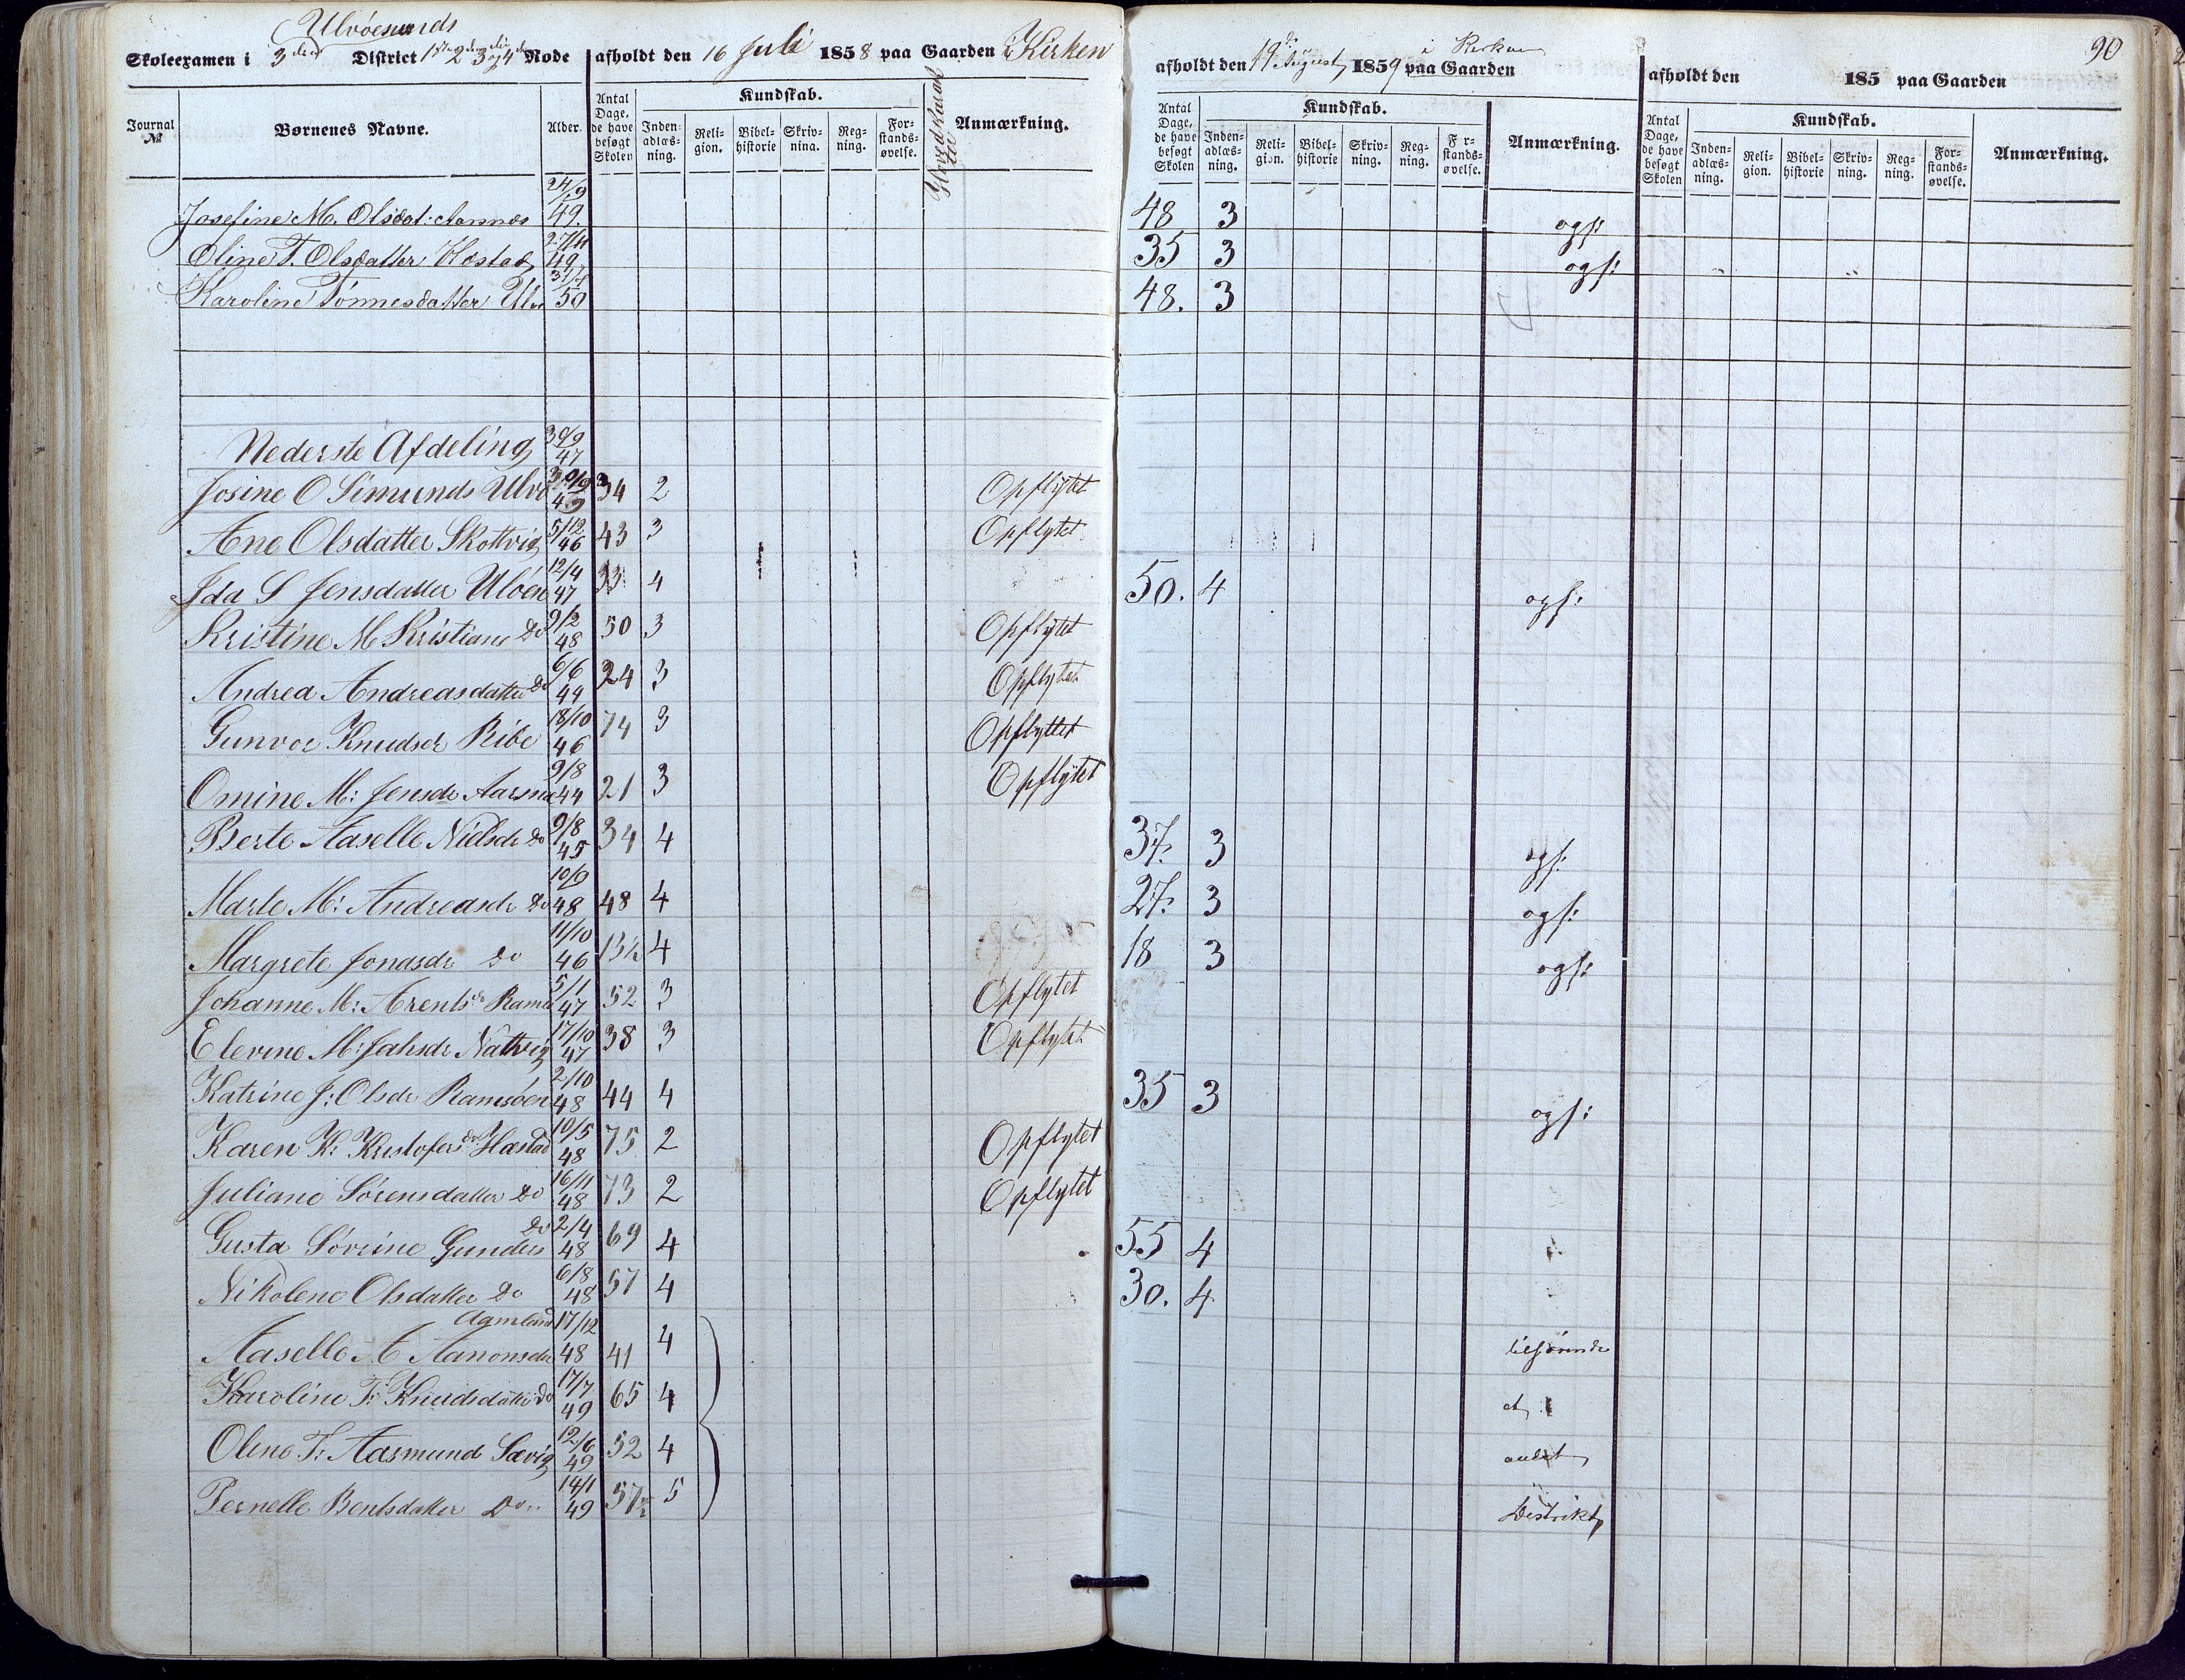 Ulvöesunds
Skoleexamen i 3die District 1ste 2den 3die og 4de Rode afholdt den 16 Juli 1858 paa Gaarden i Kirken
afholdt den 19de August 1859 paa Gaarden i Kirken
afholdt den 185 paa Gaarden
90
Journal No Børnenes Navne. Alder. Antal Dage, de have besøgt Skolen Kundskab. Inden-adlæs-ning. Reli-gion. Bibel-historie Skriv-nina. Reg-ning. For-stands-øvelse. Anmærkning.
Antal Dage, de have besøgt Skolen Kundskab. Inden-adlæs-ning. Reli-gion. Bibel-historie Skriv-ning. Reg-ning. F r-stands-øvelse. Anmærkning.
Antal Dage, de have besøgt Skolen Kundskab. Inden-adlæs-ning. Reli-gion. Bibel-historie Skriv-ning. Reg-ning. For-stands-øvelse. Anmærkning.
Josefine M. Olsdat: Aarnæs 24/9 49. 48 3 ogs:
Oline T. Olsdatter Hæstad 27/11 49 35 3 ogs:
Karoline Tönnesdatter Ulv 31/7 50 48. 3
Nederste Afdeling 30/9 47
Josine O Simunds Ulvö 30/9 49 34 2 Opflytet
Ane Olsdatter Skottvig 5/12 46 43 3 Opflytet
Ida S Jensdatter Ulöen 12/4 47 33 4 50. 4 ogs:
Kristine M Kristians Do 9/2 48 50 3 Opflytet
Andrea Andreasdatter Do 6/6 44 24 3 Opflytet
Gunvor Knudsdr Ribe 18/10 46 74 3 Opflyttet
Omine M: Jensdr Aarsnæ 9/8 44 21 3 Opflytet
Berte Aaselle Nielsdr Do 9/8 45 34 4 37. 3 ogs:
Marte M: Andreasdr Do 10/9 48 48 4 27. 3 ogs:
Margrete Jonasdr Do 11/10 46 13½ 4 18 3 ogs:
Johanne M: Arentsdr Ramsö 5/1 47 52 3 Opflytet
Elevine M: Jahsdr Nattvig 17/10 47 38 3 Opflytet
Katrine J: Olsdr Ramsöen 2/10 48 44 4 35 3 ogs:
Karen K: Kristofersdr Hæstad 10/5 48 75 2 Opflytet
Juliane Sörensdatter Do 16/11 48 73 2 Opflytet
Gusta Sövrine Gunders Do 2/4 48 69 4 55 4
Nikolene Olsdatter Do 6/8 48 57 4 30. 4
Aaselle A Aanonsdr Aamland 17/12 48 41 4 tilhörende
Karoline T: Knudsdatter Do 17/7 49 65 4 et
Olene T: Aasmund Sævig 12/6 49 52 4 andet
Pernelle Bentsdatter Do 14/1 49 57½ 5 Distrikt